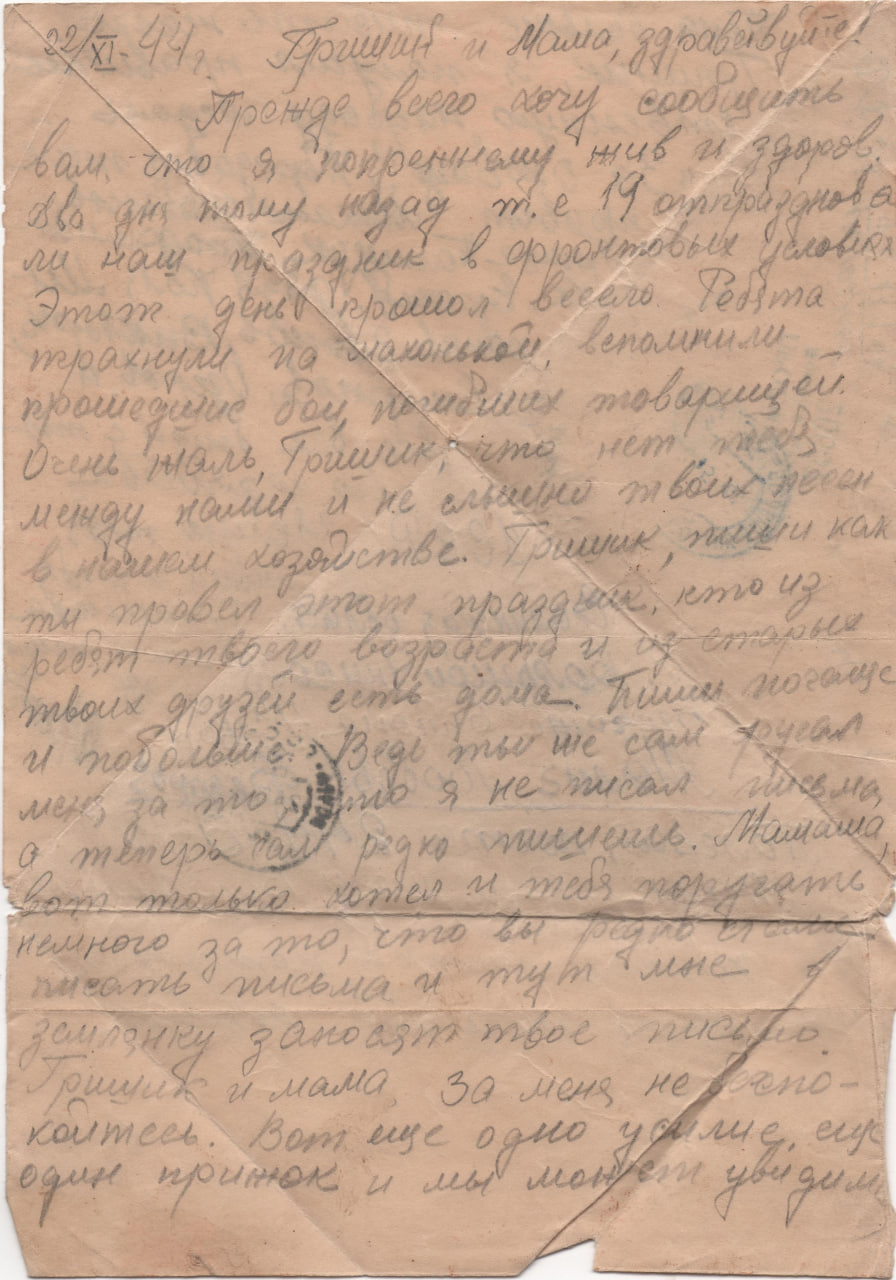 22/XI-44г. Гришик и Мама, здравствуйте!
Прежде всего хочу сообщить
вам, что я попрежнему жив и здоров.
Два дня тому назад т.е 19 отпразднова
ли наш праздник в фронтовых условиях
Этот день прошол весело. Ребята
трахнули по махонькой, вспомнили
прошедшие бои, погибших товарищей.
Очень жаль, Гришик, что нет тебя
между нами и не слышно твоих песен
в нашем хозяйстве. Гришик, пиши как
ты провел этот праздник, кто из
ребят твоего возраста и из старых
твоих друзей есть дома. Пиши почаще
и побольше. Ведь ты же сам ругал
меня за то что я не писал письма,
а теперь сам редко пишешь. Мамаша,
вот только хотел и тебя поругать
немного за то, что вы редко стали
писать письма и тут мне в
землянку заносят твое письмо.
Гришик и мама. За меня не беспо-
койтесь. Вот еще одно усилие, еще
один прижок и мы может увидим